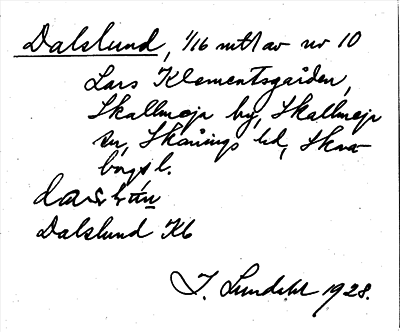 Dalslund, 1/16 mtl av nr 10
Lars Klementsgården,
Skallmeja by, Skallmeja
sn, Skånings hd, Skara-
borgs l.
Dalslund Kb
J. Lundahl 1928.